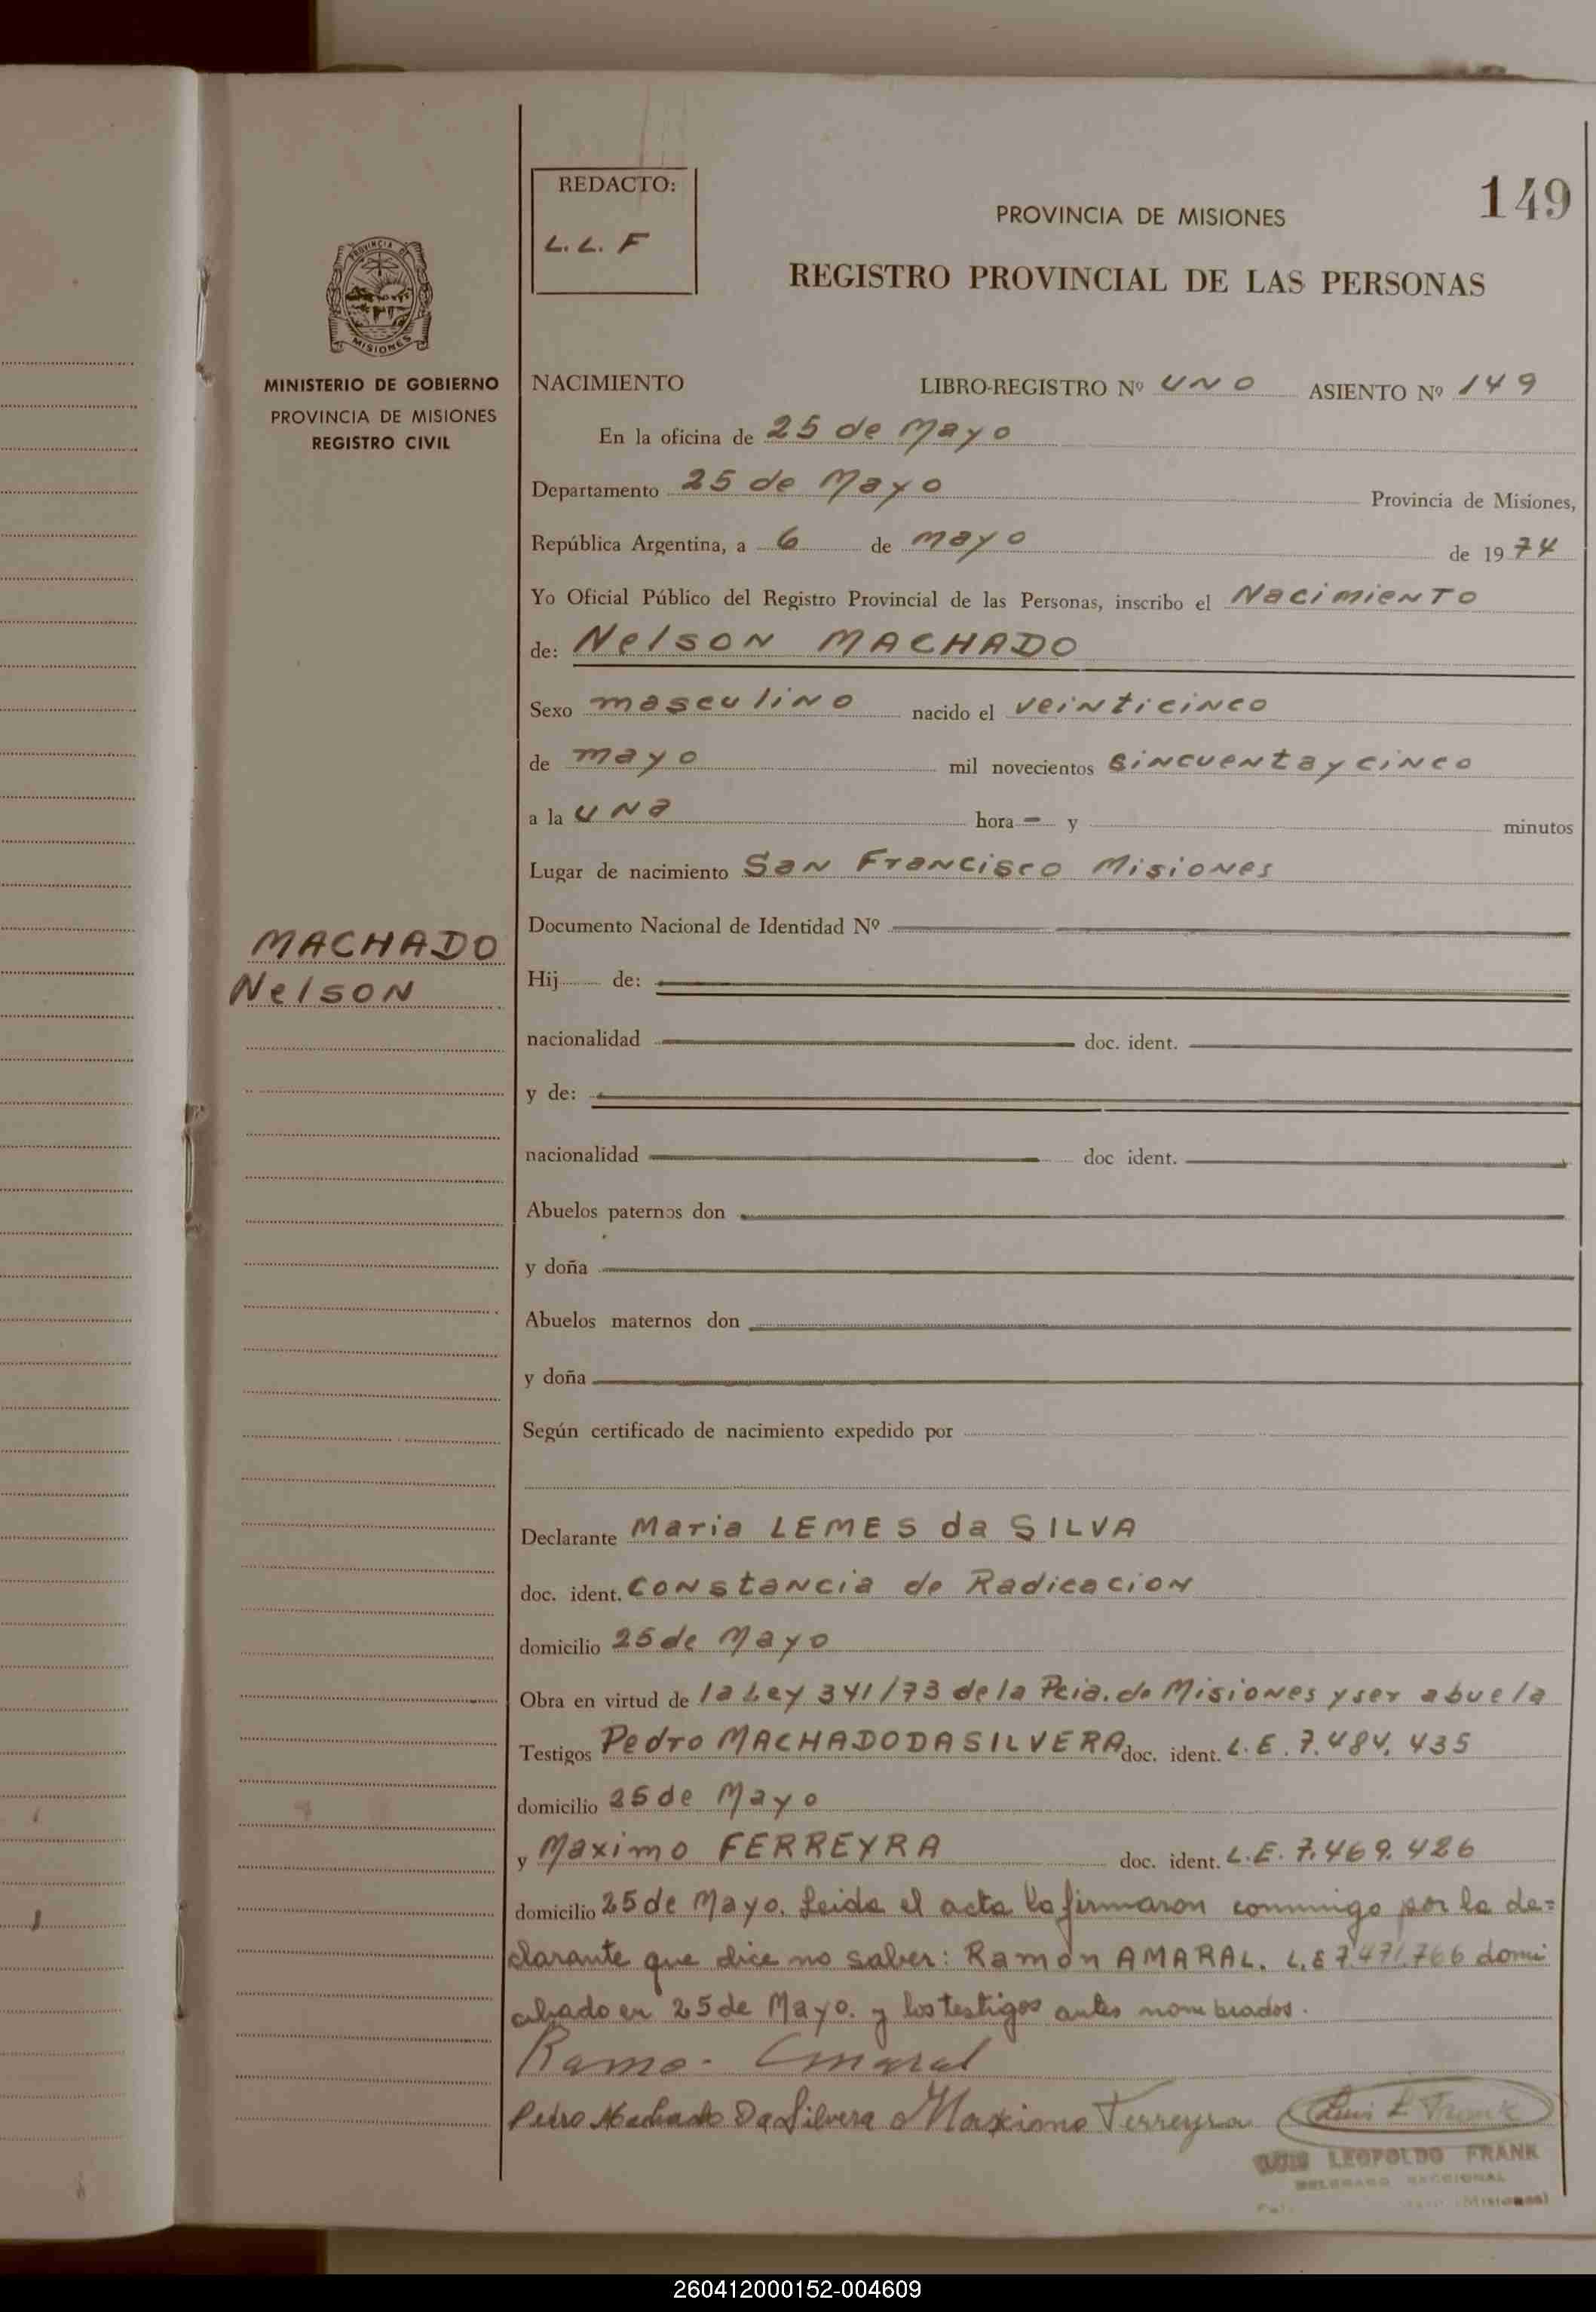 REDACTO:
L. L. F
149
PROVINCIA DE MISIONES
REGISTRO PROVINCIAL DE LAS PERSONAS
PROVINCIA DE
MISIONES
MINISTERIO DE GOBIERNO
PROVINCIA DE MISIONES
REGISTRO CIVIL
NACIMIENTO LIBRO-REGISTRO Nº UNO ASIENTO Nº 149
En la oficina de 25 de Mayo
Departamento 25 de Mayo Provincia de Misiones,
República Argentina, a 6 de mayo de 1974
Yo Oficial Público del Registro Provincial de las Personas, inscribo el Nacimiento
de: Nelson MACHADO
Sexo masculino nacido el veinticinco
de mayo mil novecientos cincuenta y cinco
a la una hora - y minutos
Lugar de nacimiento San Francisco Misiones
MACHADO
Nelson
Documento Nacional de Identidad Nº
Hij de:
nacionalidad doc. ident.
y de:
nacionalidad doc ident.
Abuelos paternos don
y doña
Abuelos maternos don
y doña
Según certificado de nacimiento expedido por
Declarante Maria LEMES da SILVA
doc. ident. Constancia de Radicacion
domicilio 25 de Mayo
Obra en virtud de la Ley 341/73 de la Pcia. de Misiones y ser abuela
Testigos Pedro MACHADO DA SILVERA doc. ident. L.E. 7.484.435
domicilio 25 de Mayo
y Maximo FERREYRA doc. ident. L.E. 7.469.426
domicilio 25 de Mayo. Leida el acta la firmaron conmigo por la de=
clarante que dice no saber: Ramón AMARAL. L.E 7.471.766 domi
ciliado en 25 de Mayo. y los testigos antes nombrados.
Ramo. Amaral
Pedro Machado Da Silvera Maximo Ferreyra Luis L Frank
LUIS LEOPOLDO FRANK
DELEGADO SECCIONAL
(Misiones)
260412000152-004609